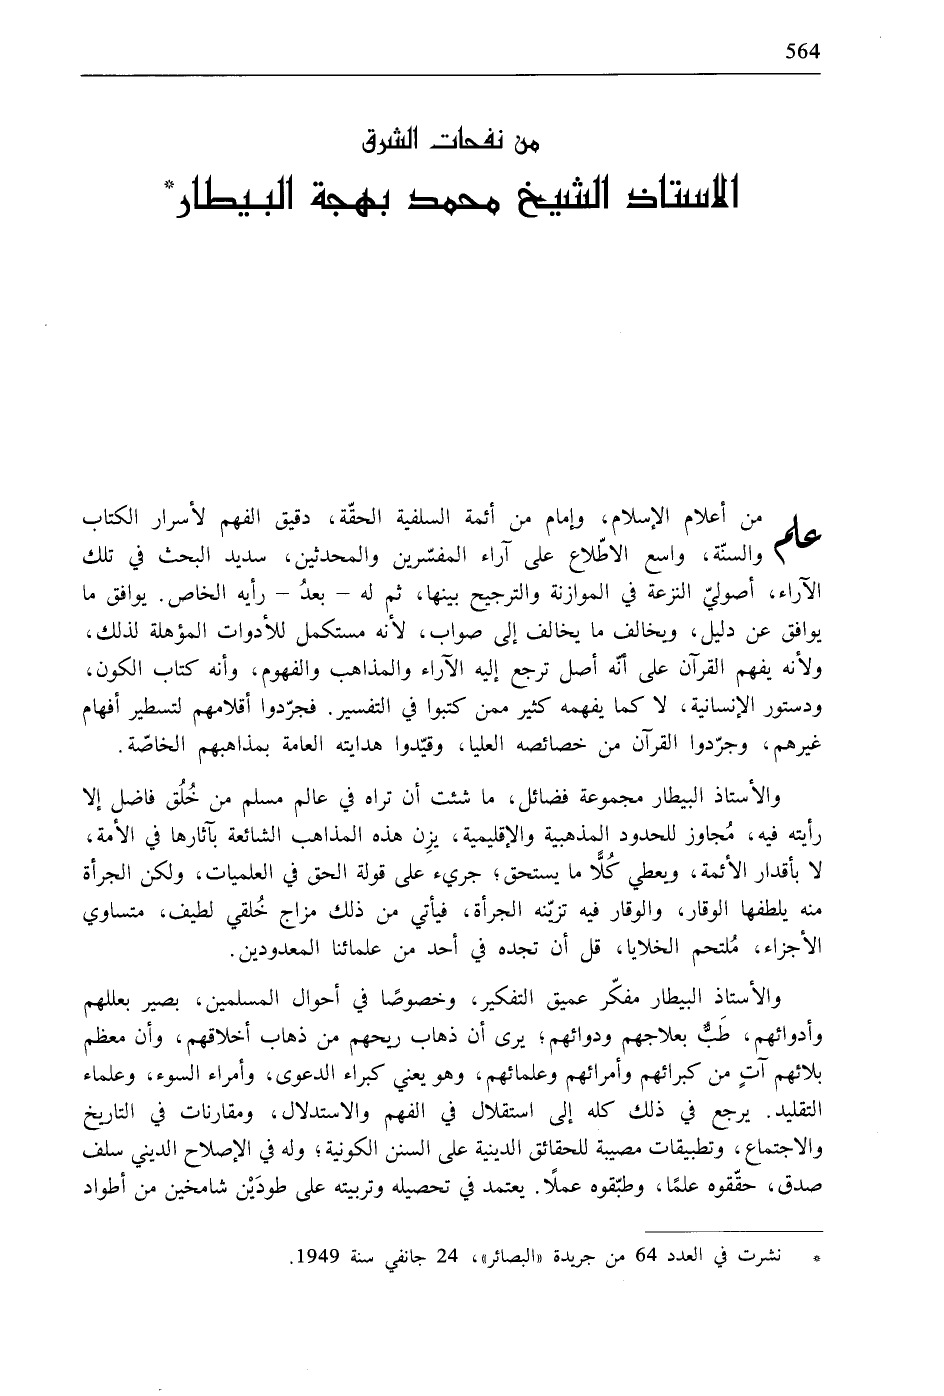 564
من نفحات الشرق
الاستاذ الشيخ محمد بهجة البيطار*
علم من أعلام الإسلام، وإمام من أئمة السلفية الحقّة، دقيق الفهم لأسرار الكتاب
والسنّة، واسع الاطّلاع على آراء المفسّرين والمحدثين، سديد البحث في تلك
الآراء، أصوليّ النزعة في الموازنة والترجيح بينها، ثم له – بعدُ – رأيه الخاص. يوافق ما
يوافق عن دليل، ويخالف ما يخالف إلى صواب، لأنه مستكمل للأدوات المؤهلة لذلك،
ولأنه يفهم القرآن على أنّه أصل ترجع إليه الآراء والمذاهب والفهوم، وأنه كتاب الكون،
ودستور الإنسانية، لا كما يفهمه كثير ممن كتبوا في التفسير. فجرّدوا أقلامهم لتسطير أفهام
غيرهم، وجرّدوا القرآن من خصائصه العليا، وقيّدوا هدايته العامة بمذاهبهم الخاصّة.
والأستاذ البيطار مجموعة فضائل، ما شئت أن تراه في عالم مسلم من خُلُق فاضل إلا
رأيته فيه، مُجاوز للحدود المذهبية والإقليمية، يزِن هذه المذاهب الشائعة بآثارها في الأمة،
لا بأقدار الأئمة، ويعطي كُلًّا ما يستحق؛ جريء على قولة الحق في العلميات، ولكن الجرأة
منه يلطفها الوقار، والوقار فيه تزيّنه الجرأة، فيأتي من ذلك مزاج خُلقي لطيف، متساوي
الأجزاء، مُلتحم الخلايا، قل أن تجده في أحد من علمائنا المعدودين.
والأستاذ البيطار مفكّر عميق التفكير، وخصوصًا في أحوال المسلمين، بصير بعللهم
وأدوائهم، طَبٌّ بعلاجهم ودوائهم؛ يرى أن ذهاب ريحهم من ذهاب أخلاقهم، وأن معظم
بلائهم آتٍ من كبرائهم وأمرائهم وعلمائهم، وهو يعني كبراء الدعوى، وأمراء السوء، وعلماء
التقليد. يرجع في ذلك كله إلى استقلال في الفهم والاستدلال، ومقارنات في التاريخ
والاجتماع، وتطبيقات مصيبة للحقائق الدينية على السنن الكونية؛ وله في الإصلاح الديني سلف
صدق، حقّقوه علمًا، وطبّقوه عملًا. يعتمد في تحصيله وتربيته على طودَيْن شامخين من أطواد
* نشرت في العدد 64 من جريدة «البصائر»، 24 جانفي سنة 1949.